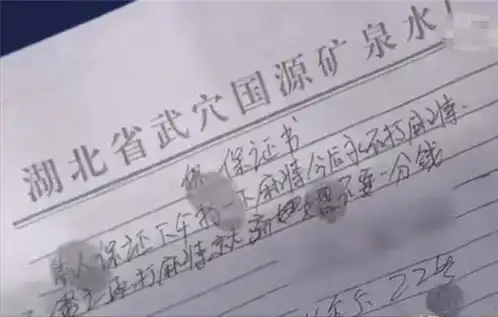 湖北省武穴国源矿泉水
保证书
本人保证下午打一下麻将今后永不打麻将.
打麻将就离婚 不要一分钱